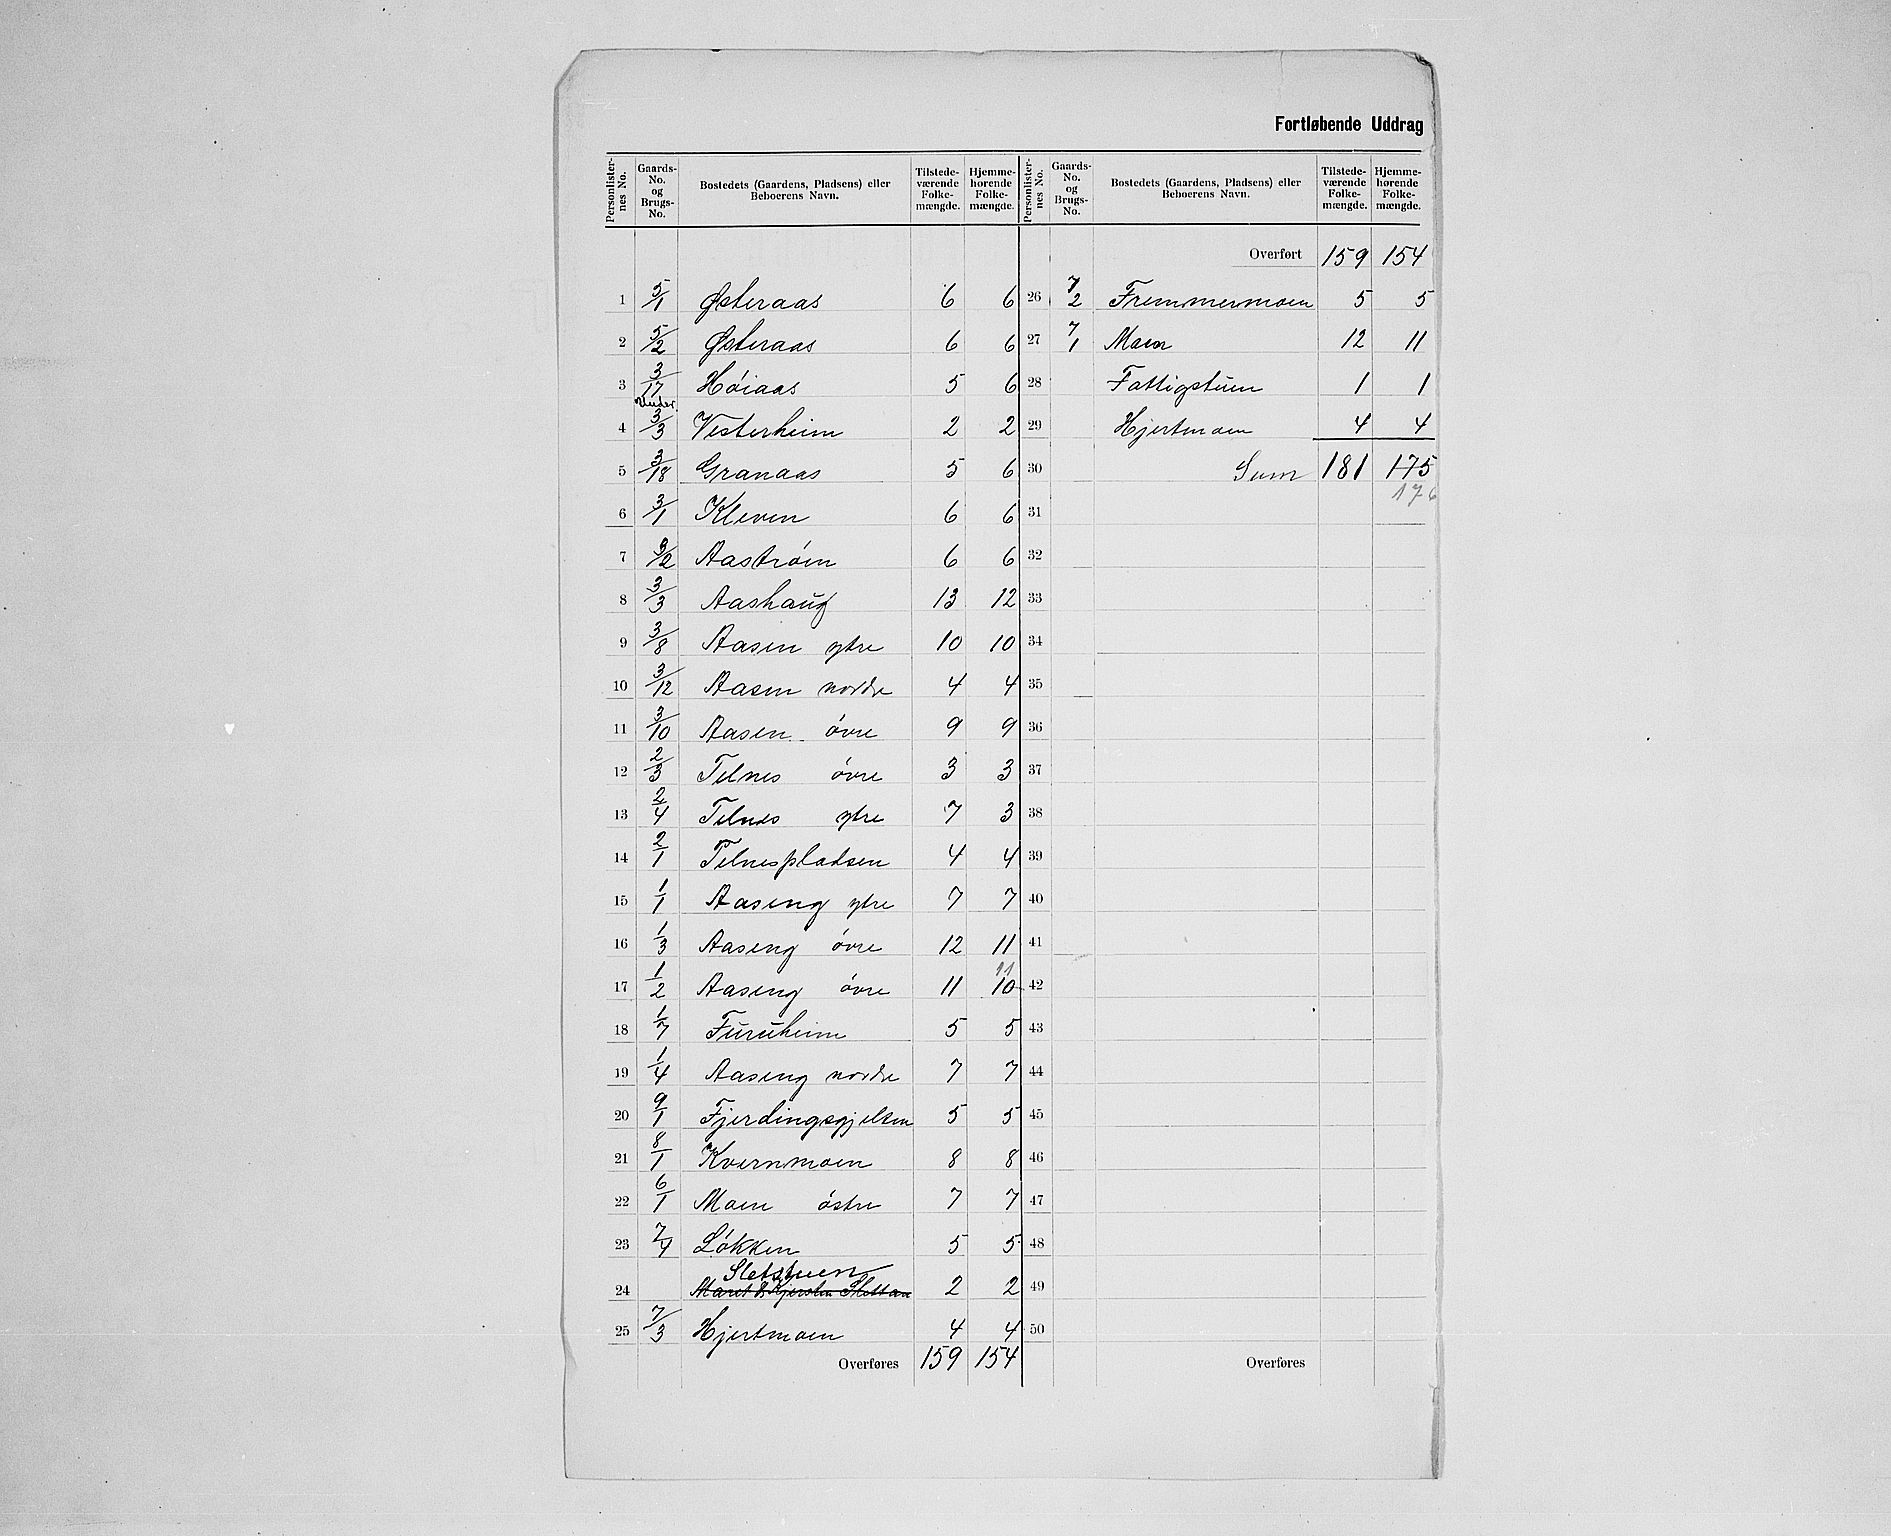 Fortløbende Uddrag
Personlister-nes No. | Gaards-No. og Brugs-No. | Bostedets (Gaardens, Pladsens) eller Beboerens Navn. | Tilstede-værende Folke-mængde. | Hjemme-hørende Folke-mængde.
1 5/1 Østeraas 6 6
2 5/2 Østeraas 6 6
3 3/17 Høiaas 5 6
4 Under 3/3 Vesterheim 2 2
5 3/18 Granaas 5 6
6 3/1 Kleven 6 6
7 3/2 Aastrøen 6 6
8 3/3 Aashaug 13 12
9 3/8 Aasen ytre 10 10
10 3/12 Aasen nordre 4 4
11 3/10 Aasen øvre 9 9
12 2/3 Telnes øvre 3 3
13 2/4 Telnes ytre 7 3
14 2/1 Telnespladsen 4 4
15 1/1 Aaseng ytre 7 7
16 1/3 Aaseng øvre 12 11
17 1/2 Aaseng øvre 11 10 11
18 1/7 Furuheim 5 5
19 1/4 Aaseng nordre 7 7
20 9/1 Fjerdingsgjelten 5 5
21 8/1 Kvernmoen 8 8
22 6/1 Moen østre 7 7
23 7/4 Løkken 5 5
Sletstuen
24 Maret & Kjersten Slettan 2 2
25 7/3 Hjertmoen 4 4
Overføres 159 154
Personlister-nes No. | Gaards-No. og Brugs-No. | Bostedets (Gaardens, Pladsens) eller Beboerens Navn. | Tilstede-værende Folke-mængde. | Hjemme-hørende Folke-mængde.
Overført 159 154
26 7/2 Fremmermoen 5 5
27 7/1 Moen 12 11
28 Fattigstuen 1 1
29 Hjertmoen 4 4
30 Sum 181 175
176
31
32
33
34
35
36
37
38
39
40
41
42
43
44
45
46
47
48
49
50
Overføres